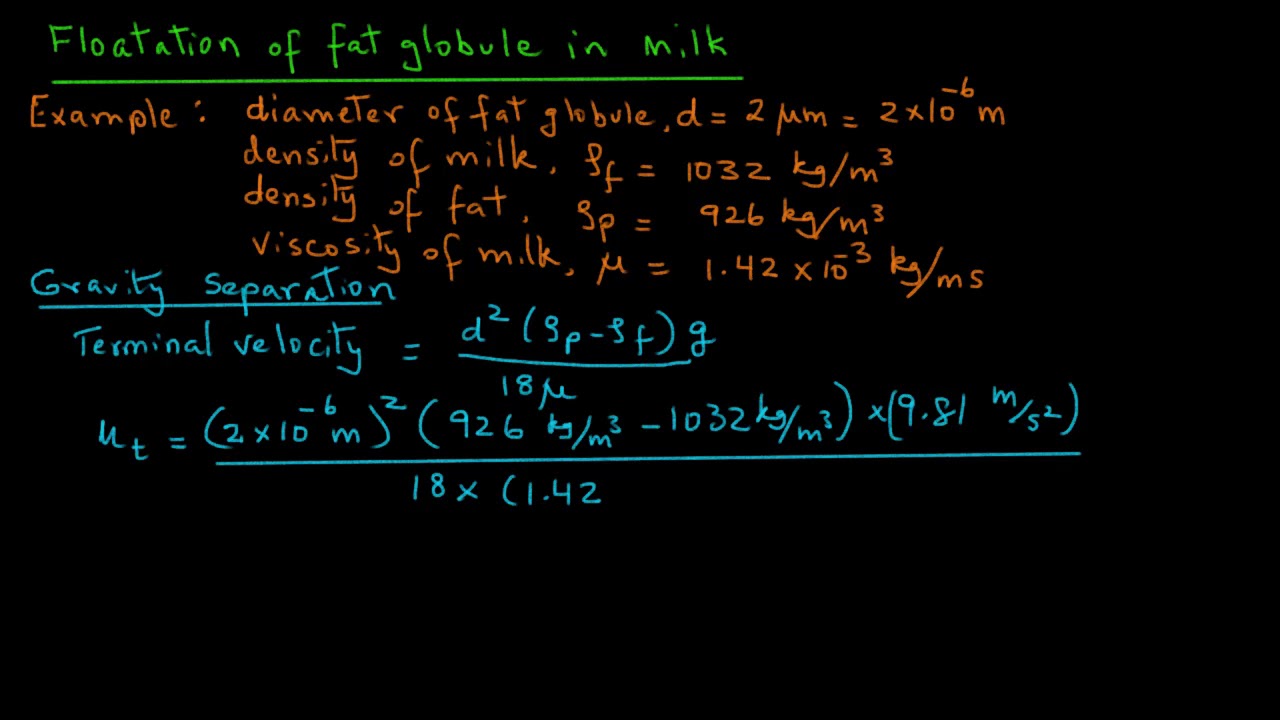 Floatation of fat globule in milk
Example: diameter of fat globule, d = 2 μm = 2×10⁻⁶ m
density of milk, ρf = 1032 kg/m³
density of fat, ρp = 926 kg/m³
viscosity of milk, μ = 1.42 × 10⁻³ kg/ms
Gravity Separation
Terminal velocity = d² (ρp - ρf) g
18 μ
ut = (2×10⁻⁶ m)² (926 kg/m³ - 1032 kg/m³) × (9.81 m/s²)
18 × (1.42